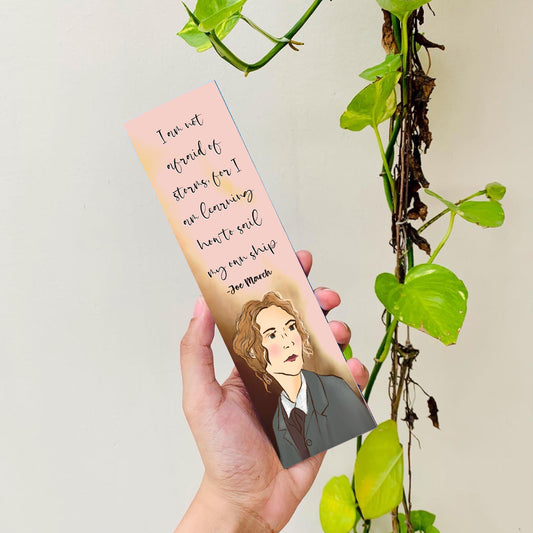 I am not
afraid of
storms, for I
am learning
how to sail
my own ship
-Joe March